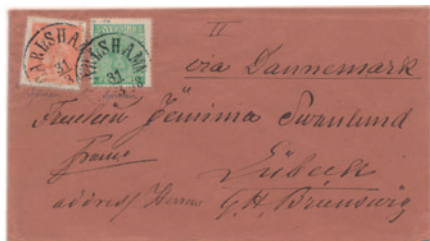 II
KARLSHAMN
31
3
KARLSHAMN
31
3
via Dannemark
Fräulein Jemima Swanlund
franco
Lübeck
address/ Herren G. H. Brunswig